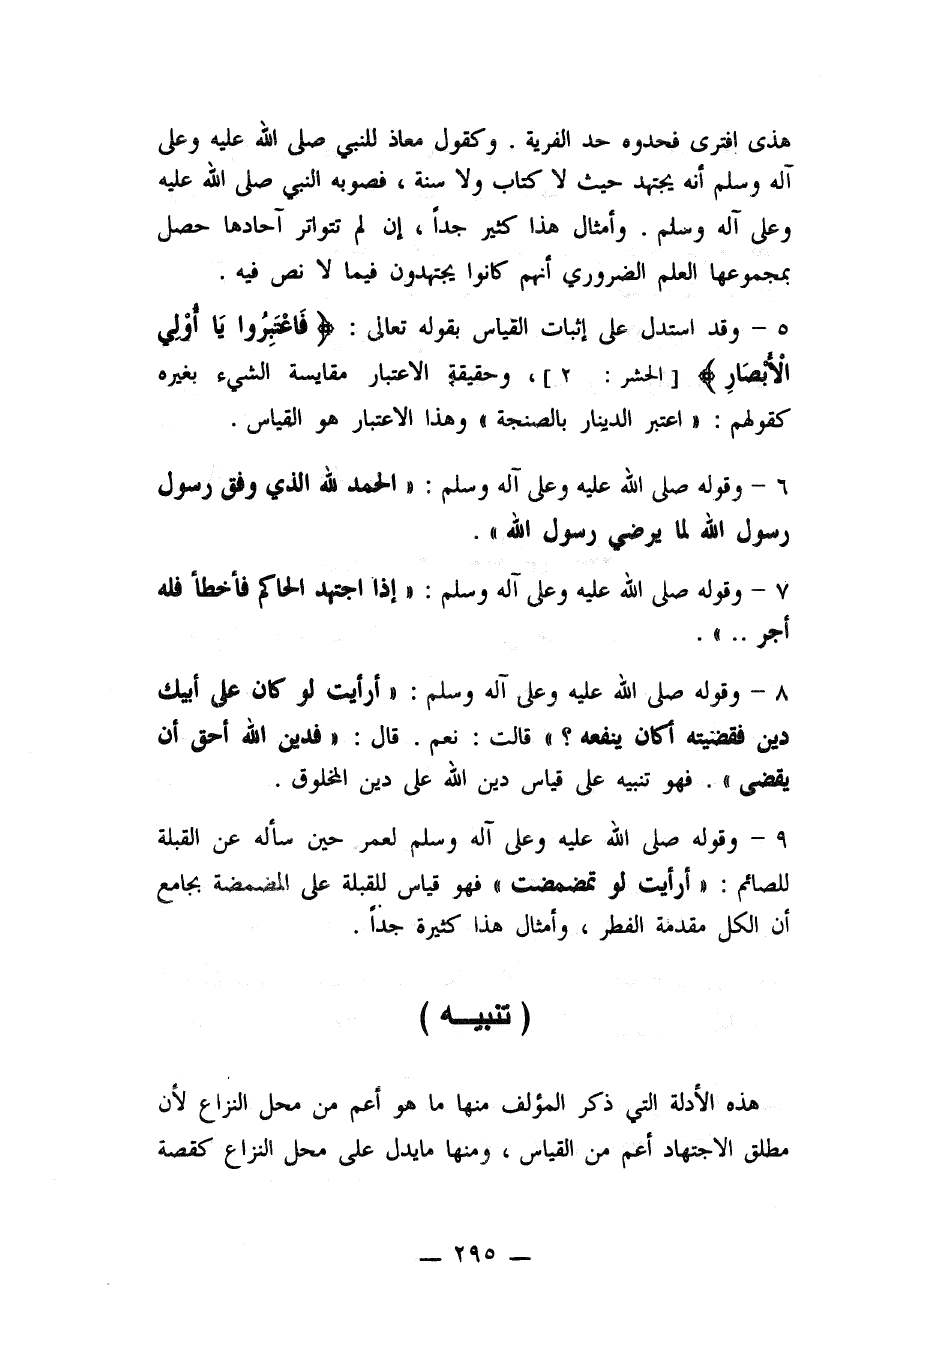 هذى افترى فحدوه حد الفرية . وكقول معاذ للنبي صلى الله عليه وعلى
آله وسلم أنه يجتهد حيث لا كتاب ولا سنة ، فصوبه النبي صلى الله عليه
وعلى آله وسلم . وأمثال هذا كثير جداً ، إن لم تتواتر آحادها حصل
بمجموعها العلم الضروري أنهم كانوا يجتهدون فيما لا نص فيه .
٥ – وقد استدل على إثبات القياس بقوله تعالى : ﴿ فَاعْتَبِرُوا يَا أُوْلِي
الْأَبْصَارِ ﴾ [ الحشر : ٢ ] ، وحقيقة الاعتبار مقايسة الشيء بغيره
كقولهم : « اعتبر الدينار بالصنجة » وهذا الاعتبار هو القياس .
٦ – وقوله صلى الله عليه وعلى آله وسلم : « الحمد لله الذي وفق رسول
رسول الله لما يرضي رسول الله » .
٧ – وقوله صلى الله عليه وعلى آله وسلم : « إذا اجتهد الحاكم فأخطأ فله
أجر .. » .
٨ – وقوله صلى الله عليه وعلى آله وسلم : « أرأيت لو كان على أبيك
دين فقضيته أكان ينفعه ؟ » قالت : نعم . قال : « فدين الله أحق أن
يقضى » . فهو تنبيه على قياس دين الله على دين المخلوق .
٩ – وقوله صلى الله عليه وعلى آله وسلم لعمر حين سأله عن القبلة
للصائم : « أرأيت لو تمضمضت » فهو قياس للقبلة على المضمضة بجامع
أن الكل مقدمة الفطر ، وأمثال هذا كثيرة جداً .
( تنبيـــه )
هذه الأدلة التي ذكر المؤلف منها ما هو أعم من محل النزاع لأن
مطلق الاجتهاد أعم من القياس ، ومنها مايدل على محل النزاع كقصة
— ٢٩٥ —